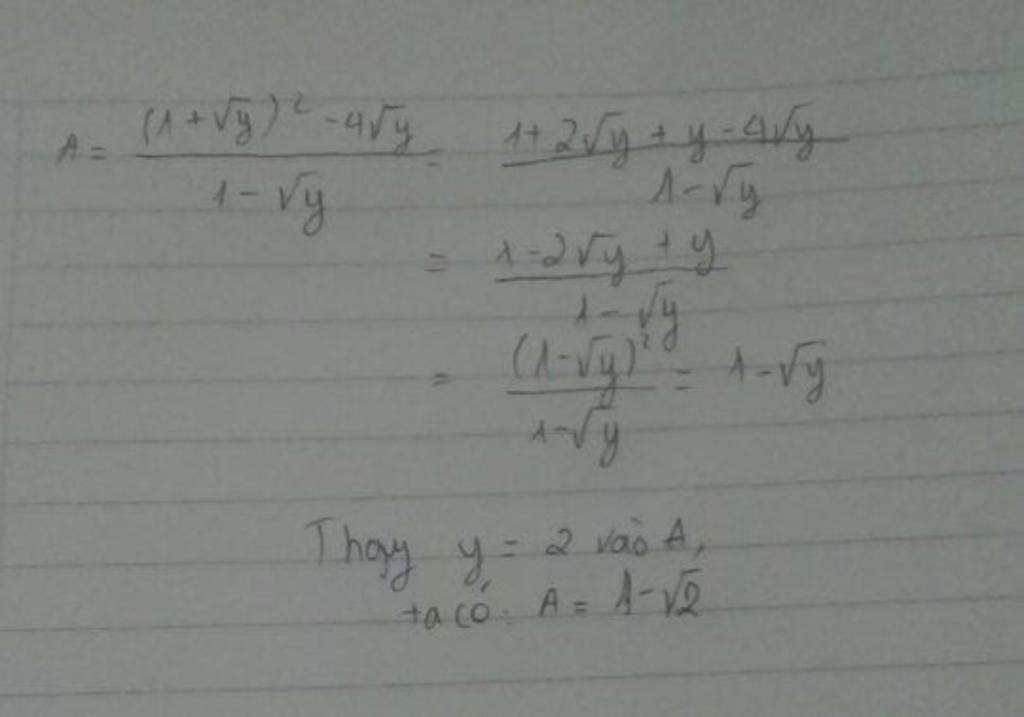 A = \frac{(1 + \sqrt{y})^2 - 4\sqrt{y}}{1 - \sqrt{y}} = \frac{1 + 2\sqrt{y} + y - 4\sqrt{y}}{1 - \sqrt{y}}
= \frac{1 - 2\sqrt{y} + y}{1 - \sqrt{y}}
= \frac{(1 - \sqrt{y})^2}{1 - \sqrt{y}} = 1 - \sqrt{y}
Thay y = 2 vào A,
ta có: A = 1 - \sqrt{2}